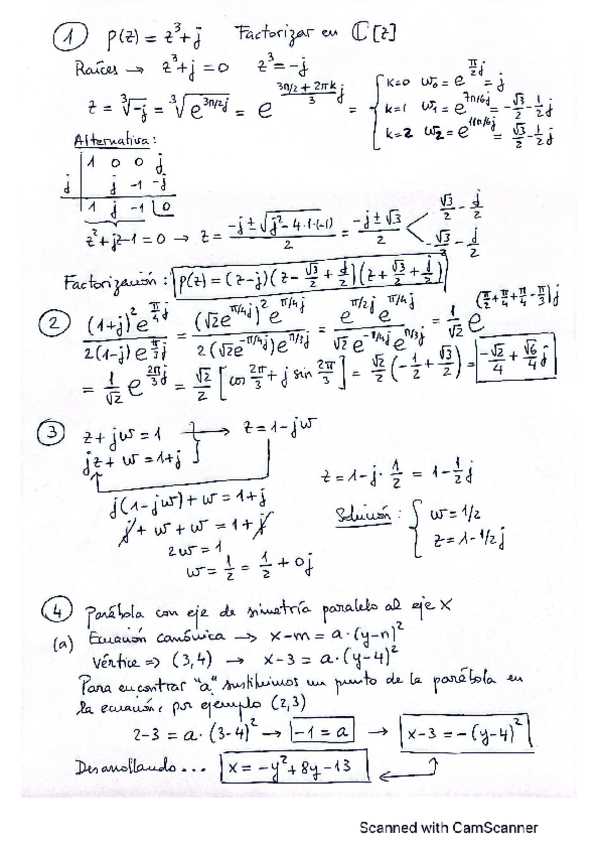 ① p(z) = z³+j   Factorizar en ℂ[z]
Raíces → z³+j = 0   z³ = -j
z = ∛-j = ∛(e^(3π/2 j)) = e^((3π/2 + 2πk)/3 j) = { k=0 w₀ = e^(π/2 j) = j
k=1 w₁ = e^(7π/6 j) = -√3/2 - 1/2 j
k=2 w₂ = e^(11π/6 j) = √3/2 - 1/2 j
Alternativa:
1 0 0 j
j | j -1 -j
1 j -1 | 0
z²+jz-1 = 0 → z = (-j ± √(j²-4·1·(-1)))/2 = (-j ± √3)/2 < √3/2 - j/2
-√3/2 - j/2
Factorización: p(z) = (z-j)(z - √3/2 + j/2)(z + √3/2 + j/2)
② ((1+j)² e^(π/4 j))/(2(1-j) e^(π/3 j)) = ((√2 e^(π/4 j))² e^(π/4 j))/(2(√2 e^(-π/4 j)) e^(π/3 j)) = (e^(π/2 j) e^(π/4 j))/(√2 e^(-π/4 j) e^(π/3 j)) = 1/√2 e^((π/2 + π/4 + π/4 - π/3)j)
= 1/√2 e^(2π/3 j) = √2/2 [cos 2π/3 + j sin 2π/3] = √2/2 (-1/2 + √3/2) = -√2/4 + √6/4 j
③ z + jw = 1 → z = 1 - jw
jz + w = 1+j
j(1-jw) + w = 1+j
j + w + w = 1 + j
2w = 1
w = 1/2 = 1/2 + 0j
z = 1 - j · 1/2 = 1 - 1/2 j
Solución: { w = 1/2
z = 1 - 1/2 j
④ Parábola con eje de simetría paralelo al eje X
(a) Ecuación canónica → x-m = a·(y-n)²
Vértice ⇒ (3,4) → x-3 = a·(y-4)²
Para encontrar "a" sustituimos un punto de la parábola en
la ecuación, por ejemplo (2,3)
2-3 = a·(3-4)² → -1 = a → x-3 = -(y-4)²
Desarrollando... x = -y²+8y-13
Scanned with CamScanner